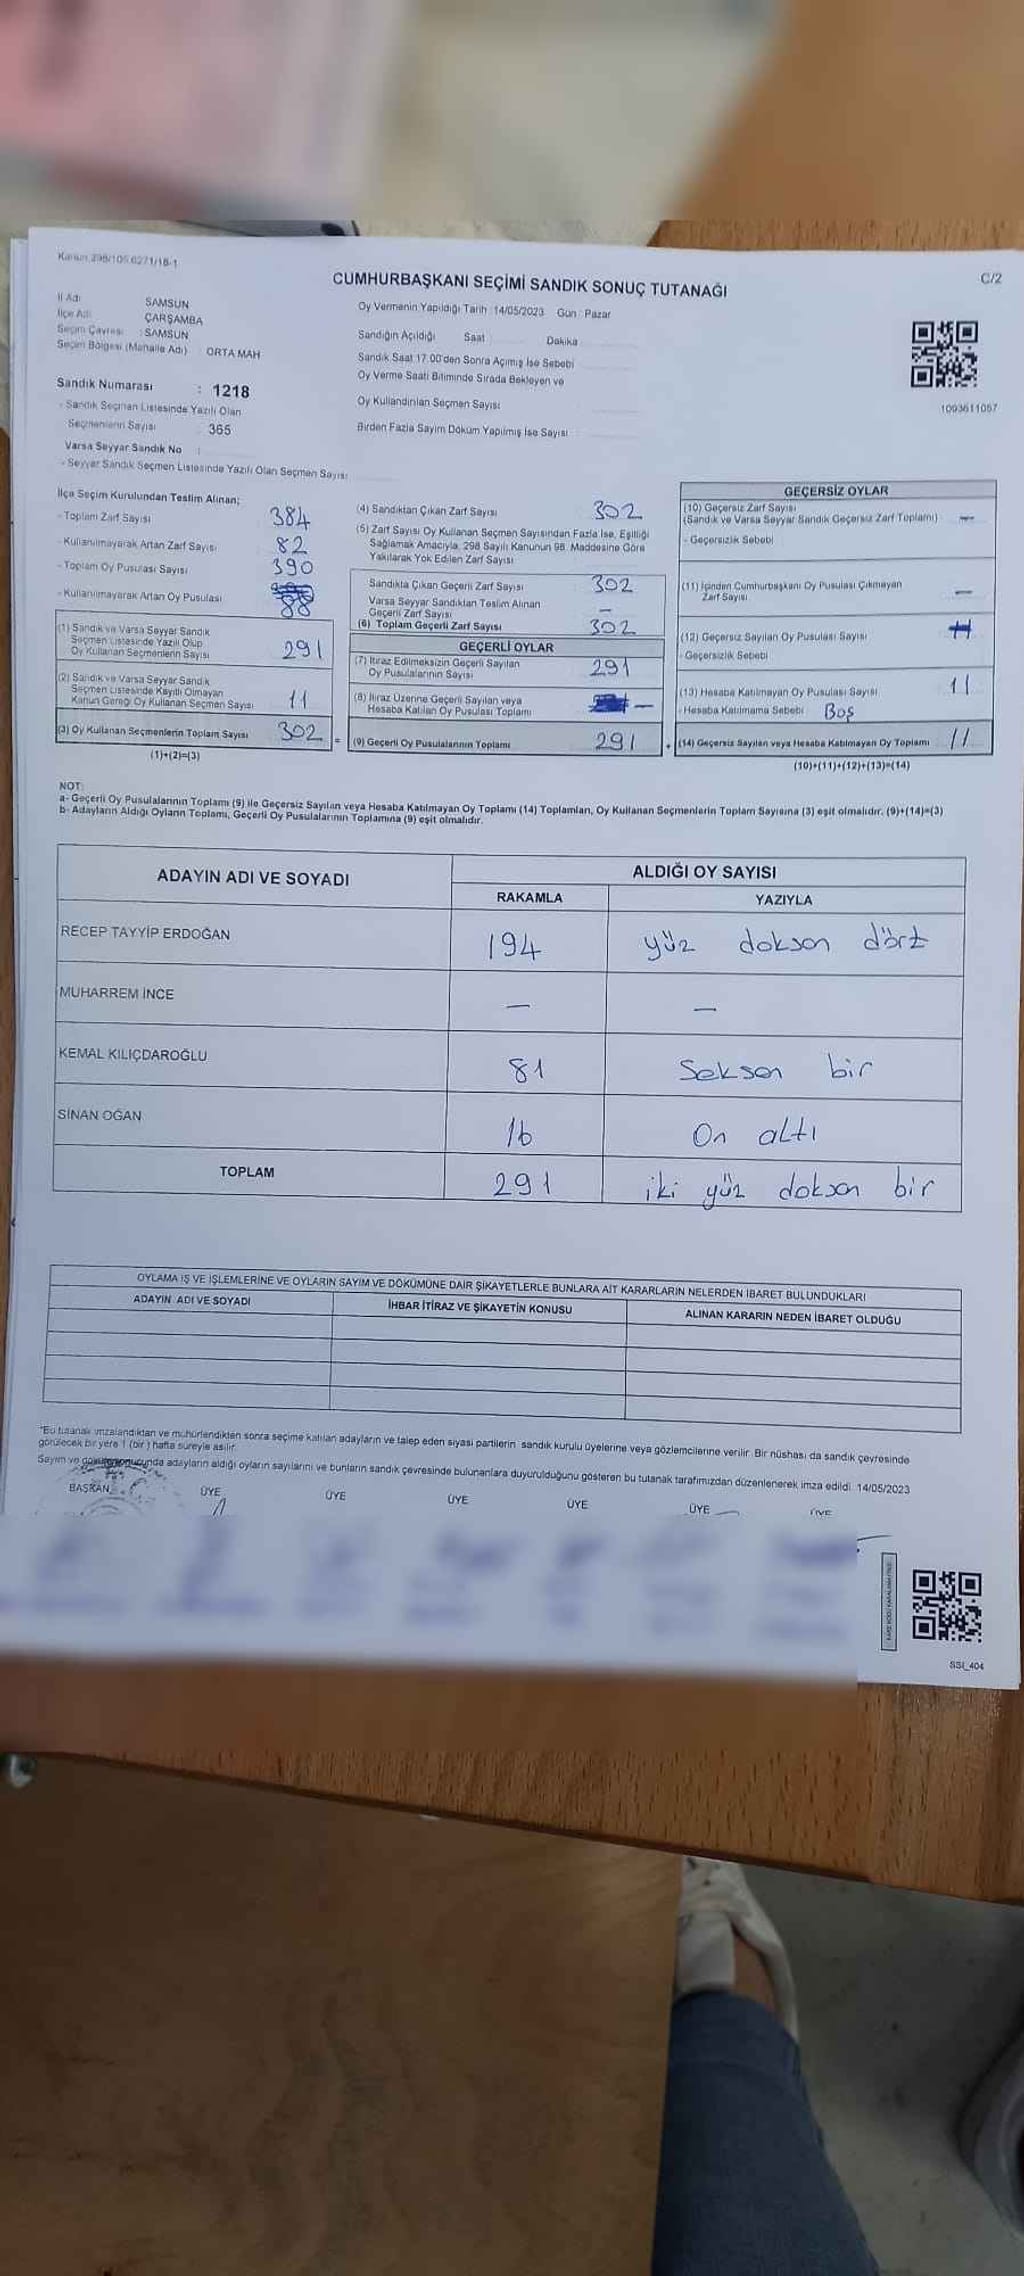 Kanun 298/105,6271/18-1
CUMHURBAŞKANI SEÇİMİ SANDIK SONUÇ TUTANAĞI
C/2
İl Adı SAMSUN
İlçe Adı ÇARŞAMBA
Seçim Çevresi : SAMSUN
Seçim Bölgesi (Mahalle Adı) ORTA MAH
Oy Vermenin Yapıldığı Tarih :14/05/2023 Gün : Pazar
Sandığın Açıldığı Saat Dakika
Sandık Saat 17.00'den Sonra Açımış İse Sebebi
Oy Verme Saati Bitiminde Sırada Bekleyen ve
Oy Kullandırılan Seçmen Sayısı
Birden Fazla Sayım Döküm Yapılmış İse Sayısı :
1093611057
Sandık Numarası : 1218
- Sandık Seçmen Listesinde Yazılı Olan
Seçmenlerin Sayısı 365
Varsa Seyyar Sandık No :
- Seyyar Sandık Seçmen Listesinde Yazılı Olan Seçmen Sayısı
İlçe Seçim Kurulundan Teslim Alınan;
- Toplam Zarf Sayısı 384
- Kullanılmayarak Artan Zarf Sayısı 82
- Toplam Oy Pusulası Sayısı 390
- Kullanılmayarak Artan Oy Pusulası 88
(1) Sandık ve Varsa Seyyar Sandık
Seçmen Listesinde Yazılı Olup
Oy Kullanan Seçmenlerin Sayısı 291
(2) Sandık ve Varsa Seyyar Sandık
Seçmen Listesinde Kayıtlı Olmayan
Kanun Gereği Oy Kullanan Seçmen Sayısı 11
(3) Oy Kullanan Seçmenlerin Toplam Sayısı 302 =
(1)+(2)=(3)
(4) Sandıktan Çıkan Zarf Sayısı 302
(5) Zarf Sayısı Oy Kullanan Seçmen Sayısından Fazla İse, Eşitliği
Sağlamak Amacıyla, 298 Sayılı Kanunun 98. Maddesine Göre
Yakılarak Yok Edilen Zarf Sayısı
Sandıkta Çıkan Geçerli Zarf Sayısı 302
Varsa Seyyar Sandıktan Teslim Alınan
Geçerli Zarf Sayısı –
(6) Toplam Geçerli Zarf Sayısı 302
GEÇERLİ OYLAR
(7) İtiraz Edilmeksizin Geçerli Sayılan
Oy Pusulalarının Sayısı 291
(8) İtiraz Üzerine Geçerli Sayılan veya
Hesaba Katılan Oy Pusulası Toplamı –
(9) Geçerli Oy Pusulalarının Toplamı 291 +
GEÇERSİZ OYLAR
(10) Geçersiz Zarf Sayısı
(Sandık ve Varsa Seyyar Sandık Geçersiz Zarf Toplamı) –
- Geçersizlik Sebebi
(11) İçinden Cumhurbaşkanı Oy Pusulası Çıkmayan
Zarf Sayısı –
(12) Geçersiz Sayılan Oy Pusulası Sayısı
- Geçersizlik Sebebi
(13) Hesaba Katılmayan Oy Pusulası Sayısı 11
- Hesaba Katılmama Sebebi Boş
(14) Geçersiz Sayılan veya Hesaba Katılmayan Oy Toplamı 11
(10)+(11)+(12)+(13)=(14)
NOT:
a- Geçerli Oy Pusulalarının Toplamı (9) ile Geçersiz Sayılan veya Hesaba Katılmayan Oy Toplamı (14) Toplamları, Oy Kullanan Seçmenlerin Toplam Sayısına (3) eşit olmalıdır. (9)+(14)=(3)
b- Adayların Aldığı Oyların Toplamı, Geçerli Oy Pusulalarının Toplamına (9) eşit olmalıdır.
ADAYIN ADI VE SOYADI ALDIĞI OY SAYISI
RAKAMLA YAZIYLA
RECEP TAYYİP ERDOĞAN 194 yüz dokson dört
MUHARREM İNCE – –
KEMAL KILIÇDAROĞLU 81 Seksen bir
SİNAN OĞAN 16 On altı
TOPLAM 291 iki yüz dokson bir
OYLAMA İŞ VE İŞLEMLERİNE VE OYLARIN SAYIM VE DÖKÜMÜNE DAİR ŞİKAYETLERLE BUNLARA AİT KARARLARIN NELERDEN İBARET BULUNDUKLARI
ADAYIN ADI VE SOYADI İHBAR İTİRAZ VE ŞİKAYETİN KONUSU ALINAN KARARIN NEDEN İBARET OLDUĞU
*Bu tutanak imzalandıktan ve mühürlendikten sonra seçime katılan adayların ve talep eden siyasi partilerin sandık kurulu üyelerine veya gözlemcilerine verilir. Bir nüshası da sandık çevresinde
görülecek bir yere 1 (bir) hafta süreyle asılır.
Sayım ve döküm sonucunda adayların aldığı oyların sayılarını ve bunların sandık çevresinde bulunanlara duyurulduğunu gösteren bu tutanak tarafımızdan düzenlenerek imza edildi. 14/05/2023
BAŞKAN ÜYE ÜYE ÜYE ÜYE ÜYE ÜYE
SSI_404